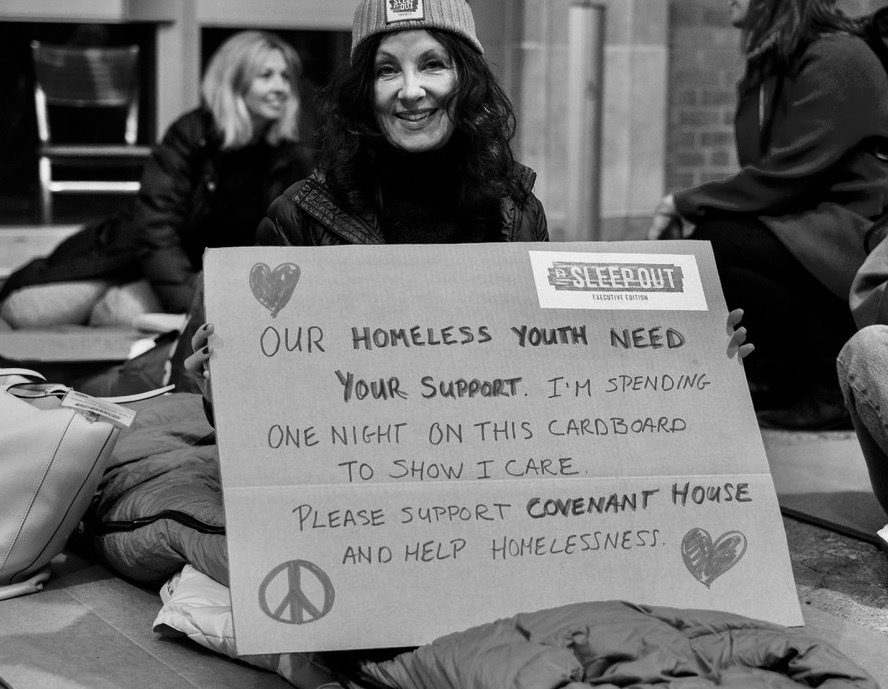 SLEEP OUT
SLEEP OUT
EXECUTIVE EDITION
OUR HOMELESS YOUTH NEED
YOUR SUPPORT. I'M SPENDING
ONE NIGHT ON THIS CARDBOARD
TO SHOW I CARE.
PLEASE SUPPORT COVENANT HOUSE
AND HELP HOMELESSNESS.